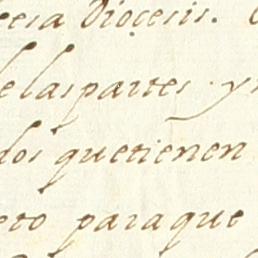 esa Diocesis.
e las partes y
dos que tienen
eto para que